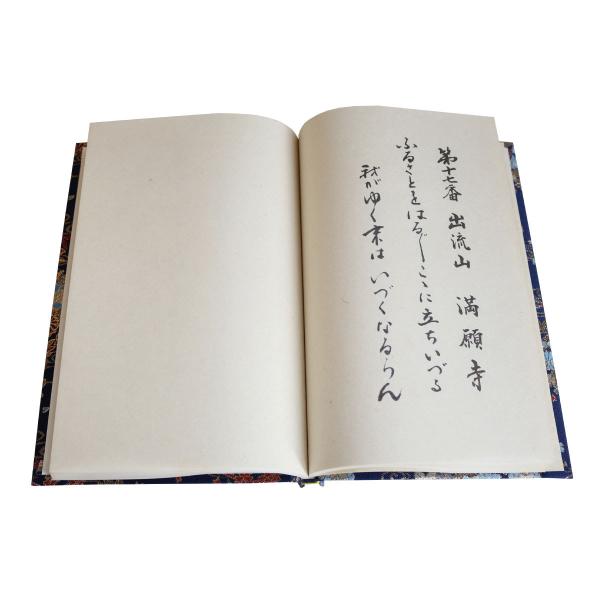 第十七番 出流山 満願寺
ふるさとをはる〴〵こゝに立ちいづる
我がゆく末は いづくなるらん